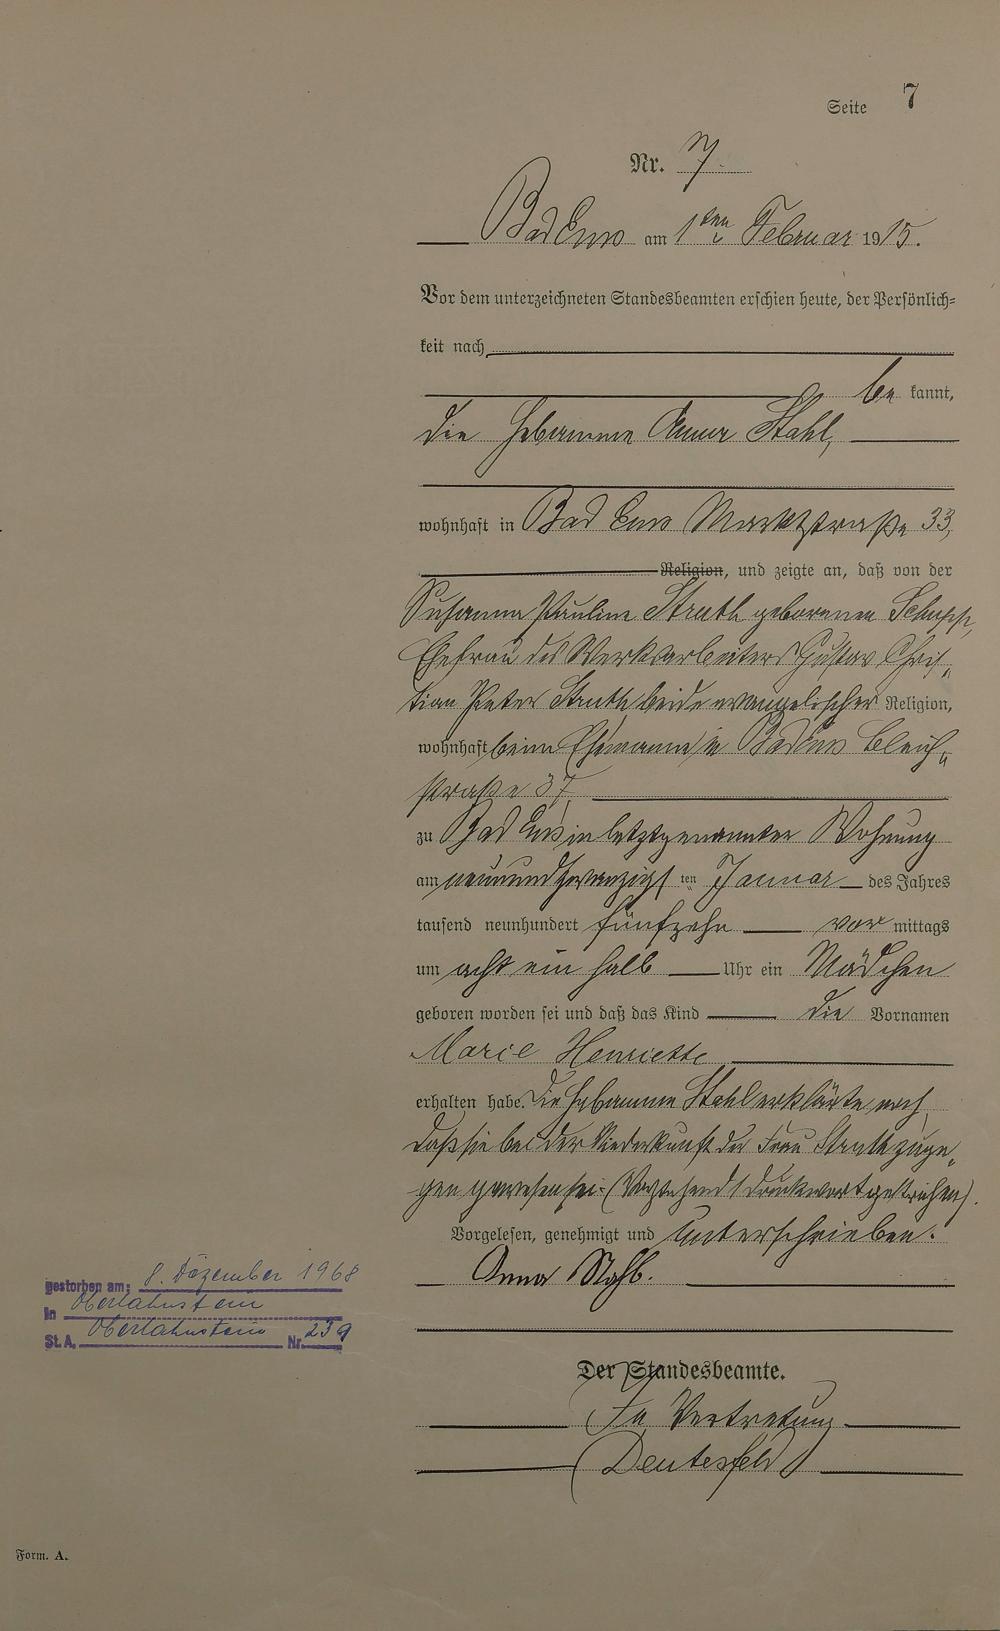 Seite 7
Nr. 7.
Bad Ems am 1ten Februar 1915.
Vor dem unterzeichneten Standesbeamten erschien heute, der Persönlich-
keit nach
be kannt,
die Hebamme Anna Stahl,
wohnhaft in Bad Ems Marktstraße 33,
Religion, und zeigte an, daß von der
Susanna Pauline Struth geborenen Schupp,
Ehefrau des Werksarbeiters Gustav Chris-
tian Peter Struth, beide evangelischer Religion,
wohnhaft beim Ehemanne in Bad Ems Bleich-
straße 37,
zu Bad Ems in letztgenannter Wohnung
am neunundzwanzigsten Januar des Jahres
tausend neunhundert fünfzehn vor mittags
um acht ein halb Uhr ein Mädchen
geboren worden sei und daß das Kind die Vornamen
Marie Henriette
erhalten habe. Die Hebamme Stahl erklärte noch,
daß sie bei der Niederkunft der Frau Struth zuge-
gen gewesen sei. (Vorstehend 1 Druckwort gestrichen).
Vorgelesen, genehmigt und unterschrieben.
Anna Stahl.
gestorben am: 8. Dezember 1968
in Oberlahnstein
St.A. Oberlahnstein Nr. 239
Der Standesbeamte.
In Vertretung
Deutesfeld
Form. A.